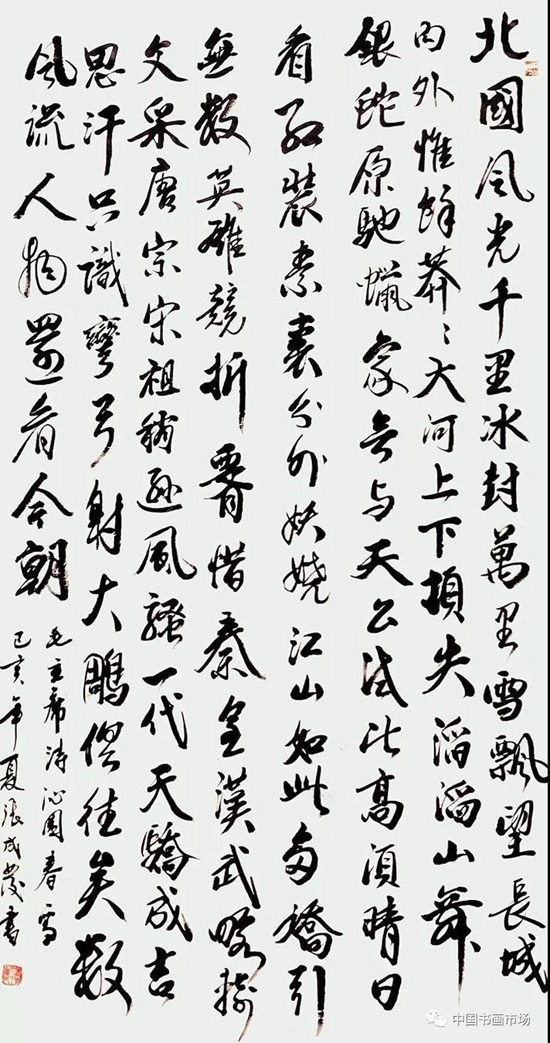 北國风光千里冰封萬里雪飄望長城
内外惟餘莽〻大河上下頓失滔滔山舞
銀蛇原馳蠟象欲与天公试比高須晴日
看红裝素裹分外妖娆江山如此多嬌引
無数英雄競折腰惜秦皇漢武略输
文采唐宗宋祖稍逊風騷一代天驕成吉
思汗只識彎弓射大鵰俱往矣数
风流人物還看今朝
毛主席诗沁园春雪
己亥年夏张成发书
中国书画市场